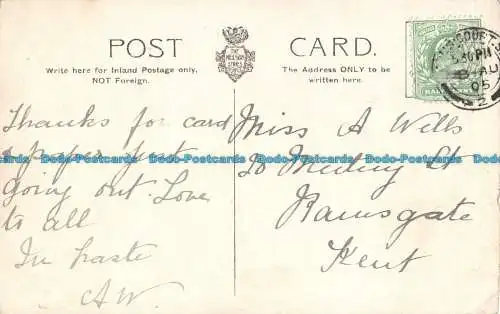 POST CARD.
Write here for Inland Postage only,
NOT Foreign.
The Address ONLY to be
written here.
Thanks for card
& paper just
going out. Love
to all
In haste
AW.
Miss A Wells
St
Ramsgate
Kent
AU
05
2
HAL
Dodo-Postcards Dodo-Postcards Dodo-Postcards Dodo-Postcards Dodo-Postcards